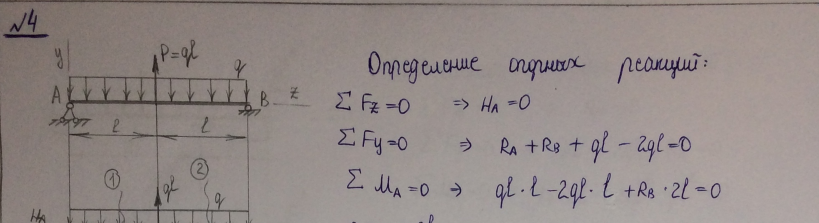 №4
y
P=ql
q
A
B
z
l
l
Определение опорных реакций:
Σ Fz=0 => HA=0
Σ Fy=0 => RA + RB + ql - 2ql=0
Σ MA=0 => ql·l - 2ql·l + RB·2l=0
1
2
ql
q
HA